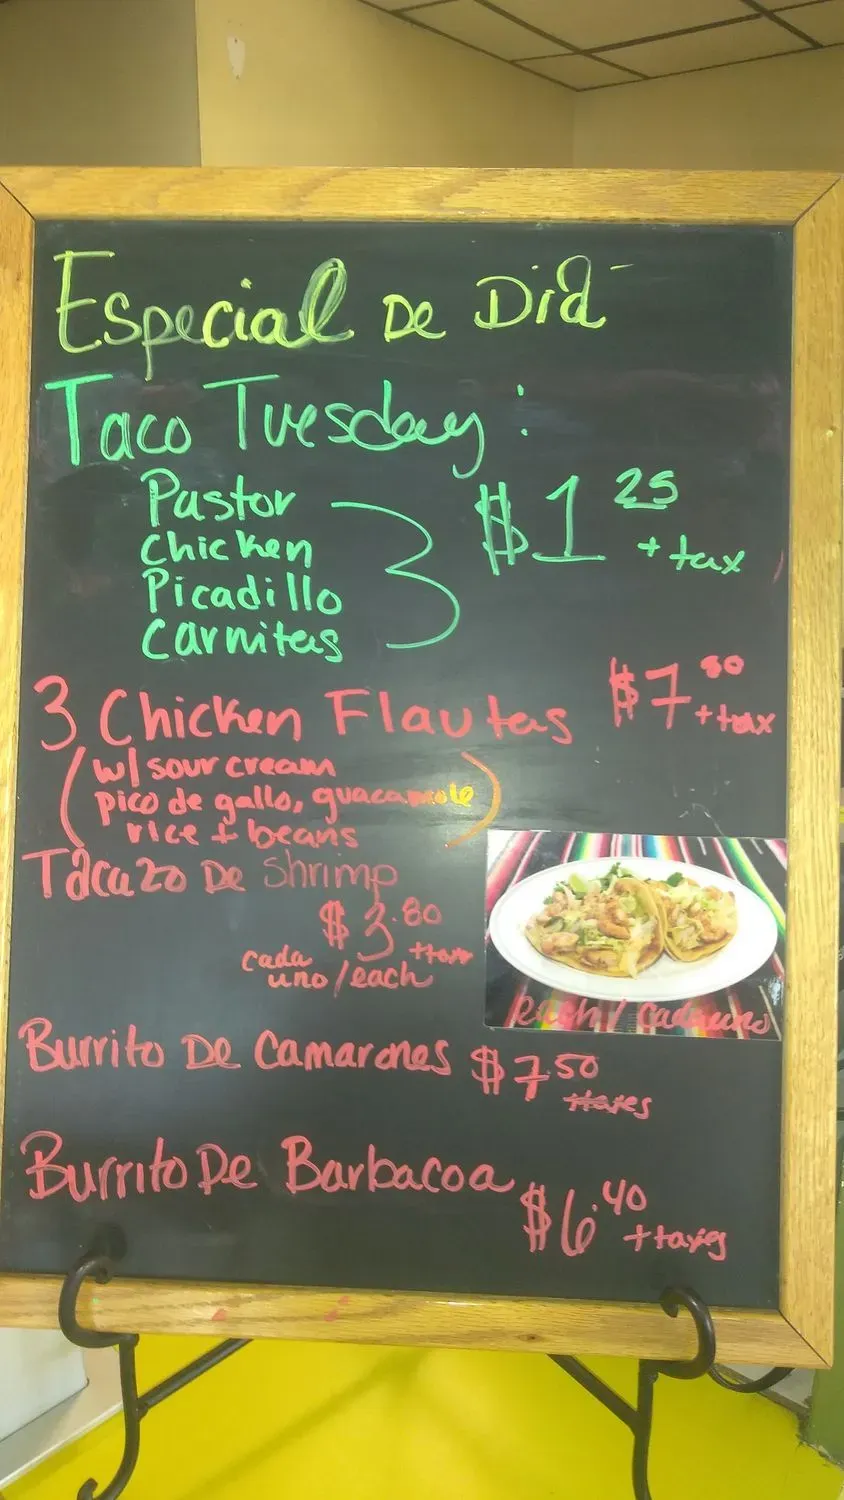 Especial De Día
Taco Tuesday:
Pastor
Chicken
Picadillo
Carnitas
$1 25
+ tax
3 Chicken Flautas $7 80
+ tax
(w/ sour cream
pico de gallo, guacamole
rice + beans)
Tacazo De Shrimp
$3.80
+ tax
cada
uno/each
each / cada uno
Burrito De Camarones $7.50
+taxes
Burrito De Barbacoa
$6.40
+ taxes